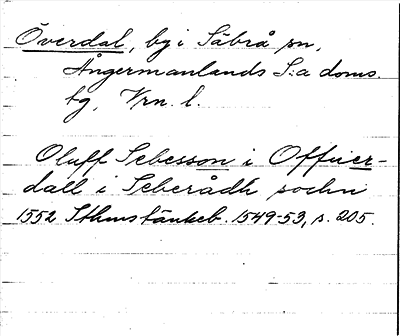 Överdal, by i Säbrå sn,
Ångermanlands S:a doms.
tg, Vrn. l.
Oluff Sebesson i Offuer-
dall i Seberådh sochn
1552 Sthmstänkeb. 1549-53, s. 205.